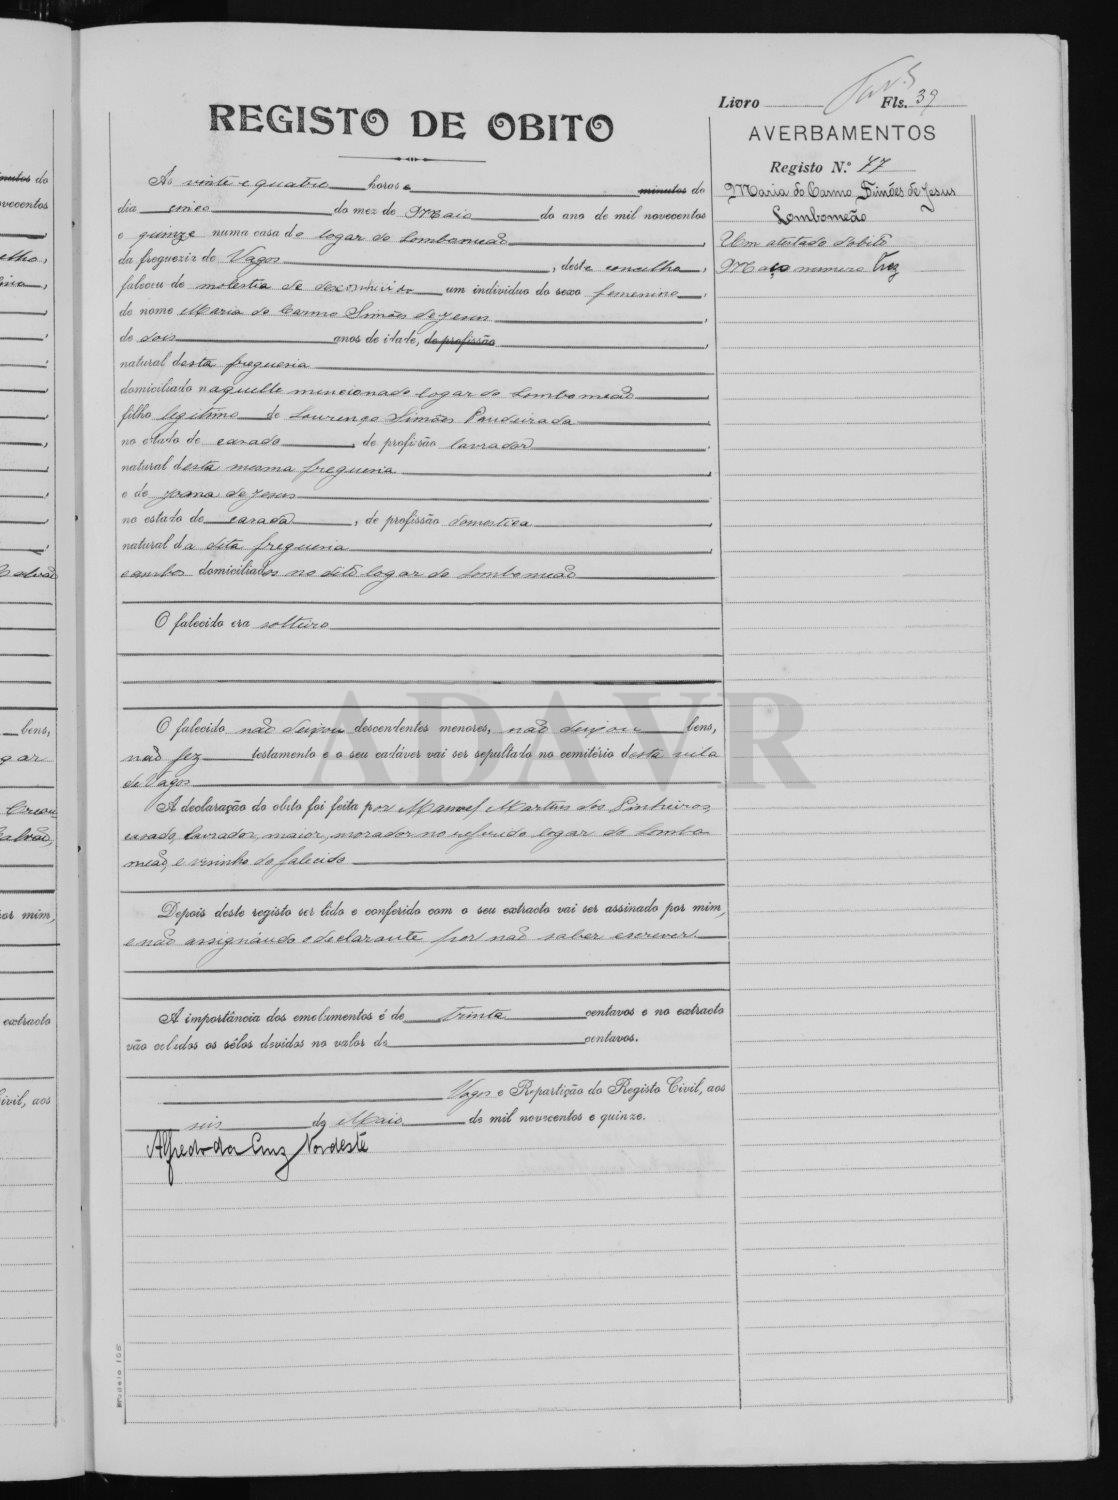 Livro Fls. 39
REGISTO DE OBITO
AVERBAMENTOS
Registo N.º 47
Maria do Carmo Simões de Jesus
Lombomeão
Um atestado dobito
Maço numero trez
Ás vinte e quatro horas e minutos do
dia cinco do mez de Maio do ano de mil novecentos
e quinze numa casa do logar do Lombomeão,
da freguezia de Vagos, deste concelho,
faleceu de molestia de desconhecido um individuo do sexo femenino,
de nome Maria do Carmo Simões de Jesus,
de dois anos de idade, de profissão,
natural desta freguesia
domiciliado naquelle mencionado logar do Lombomeão,
filho legitimo de Lourenço Simões Pandeirada,
no estado de casado, de profissão lavrador,
natural desta mesma freguesia,
e de Joana de Jesus
no estado de casada, de profissão domestica,
natural da dita freguesia,
e ambos domiciliados no dito logar do Lombomeão
O falecido era solteiro
O falecido não deixou descendentes menores, não deixou bens,
não fez testamento e o seu cadáver vai ser sepultado no cemitério desta vila
de Vagos
A declaração do obito foi feita por Manoel Martins dos Pinheiros,
casado, lavrador, maior, morador no referido logar do Lombo
meão, e visinho do falecido
Depois deste registo ser lido e conferido com o seu extracto vai ser assinado por mim,
e não assignando o declarante por não saber escrever.
A importância dos emolumentos é de trinta centavos e no extracto
vão colados os sêlos devidos no valor de centavos.
Vagos e Repartição do Registo Civil, aos
seis de Maio de mil novecentos e quinze.
Alfredo da Cruz Nordeste
Modelo 108
ADAVR
minutos do
novecentos
bens,
gar
por mim,
extracto
Civil, aos